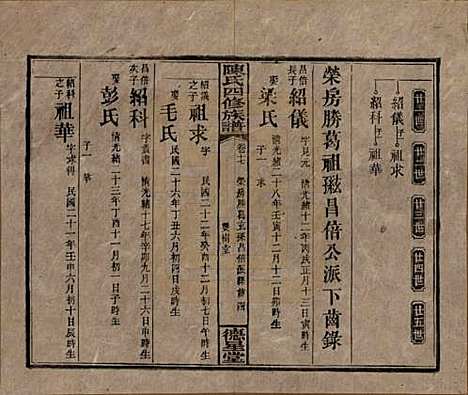 廿一世
廿二世
廿三世
廿四世
廿五世
紹儀 祖求
紹科 祖華
榮房勝葛祖璲昌倍公派下齒錄
昌倍長子 紹儀 字見元 清光緒十二年丙戌正月十三日寅時生
娶 梁氏 清光緒二十八年壬寅十二月十二日卯時生
子一 求
紹儀之子 祖求 字 民國二十二年癸酉十二月初七日午時生
娶 毛氏 民國二十六年丁丑六月初四日戌時生
陳氏四修族譜
卷七
雙樹堂
德星堂
昌倍次子 紹科 字叢書 清光緒十七年辛卯九月二十六日寅時生
娶 彭氏 清光緒二十三年丁酉十一月初一日子時生
子一 華
紹科之子 祖華 字求科 民國二十一年壬申六月初八日辰時生